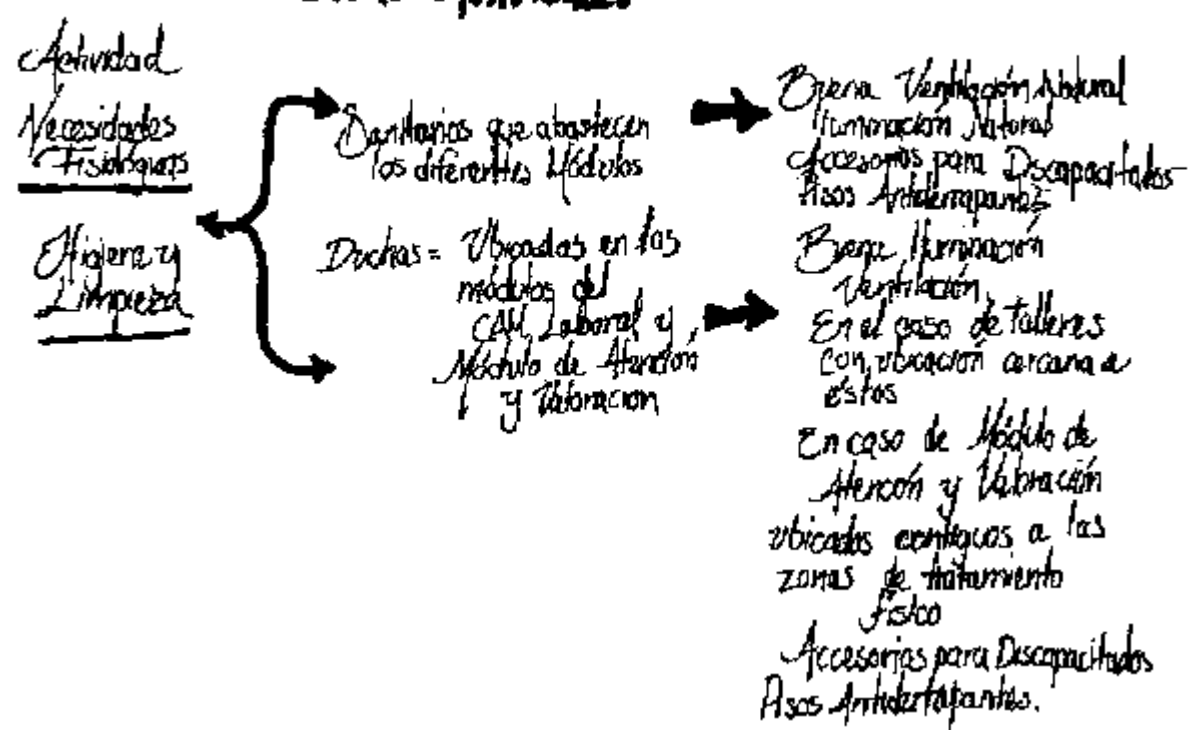 Actividad
Necesidades
Fisiológicas
Higiene y
Limpieza
Sanitarios que abastecen
los diferentes Módulos
Duchas = Ubicadas en los
módulos del
CAM Laboral y
Módulo de Atención
y Valoración
Buena Ventilación Natural
Iluminación Natural
Accesorios para Discapacitados
Pisos Antiderrapantes
Buena Iluminación
Ventilación,
En el caso de talleres
con ubicación cercana a
éstos
En caso de Módulo de
Atención y Valoración
ubicados contiguos a las
zonas de tratamiento
físico
Accesorios para Discapacitados
Pisos Antiderrapantes.